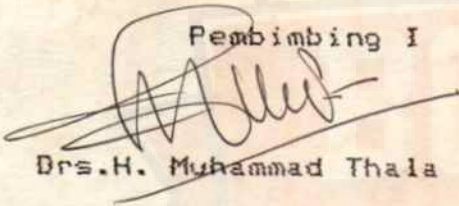 Pembimbing I
Drs.H. Muhammad Thala